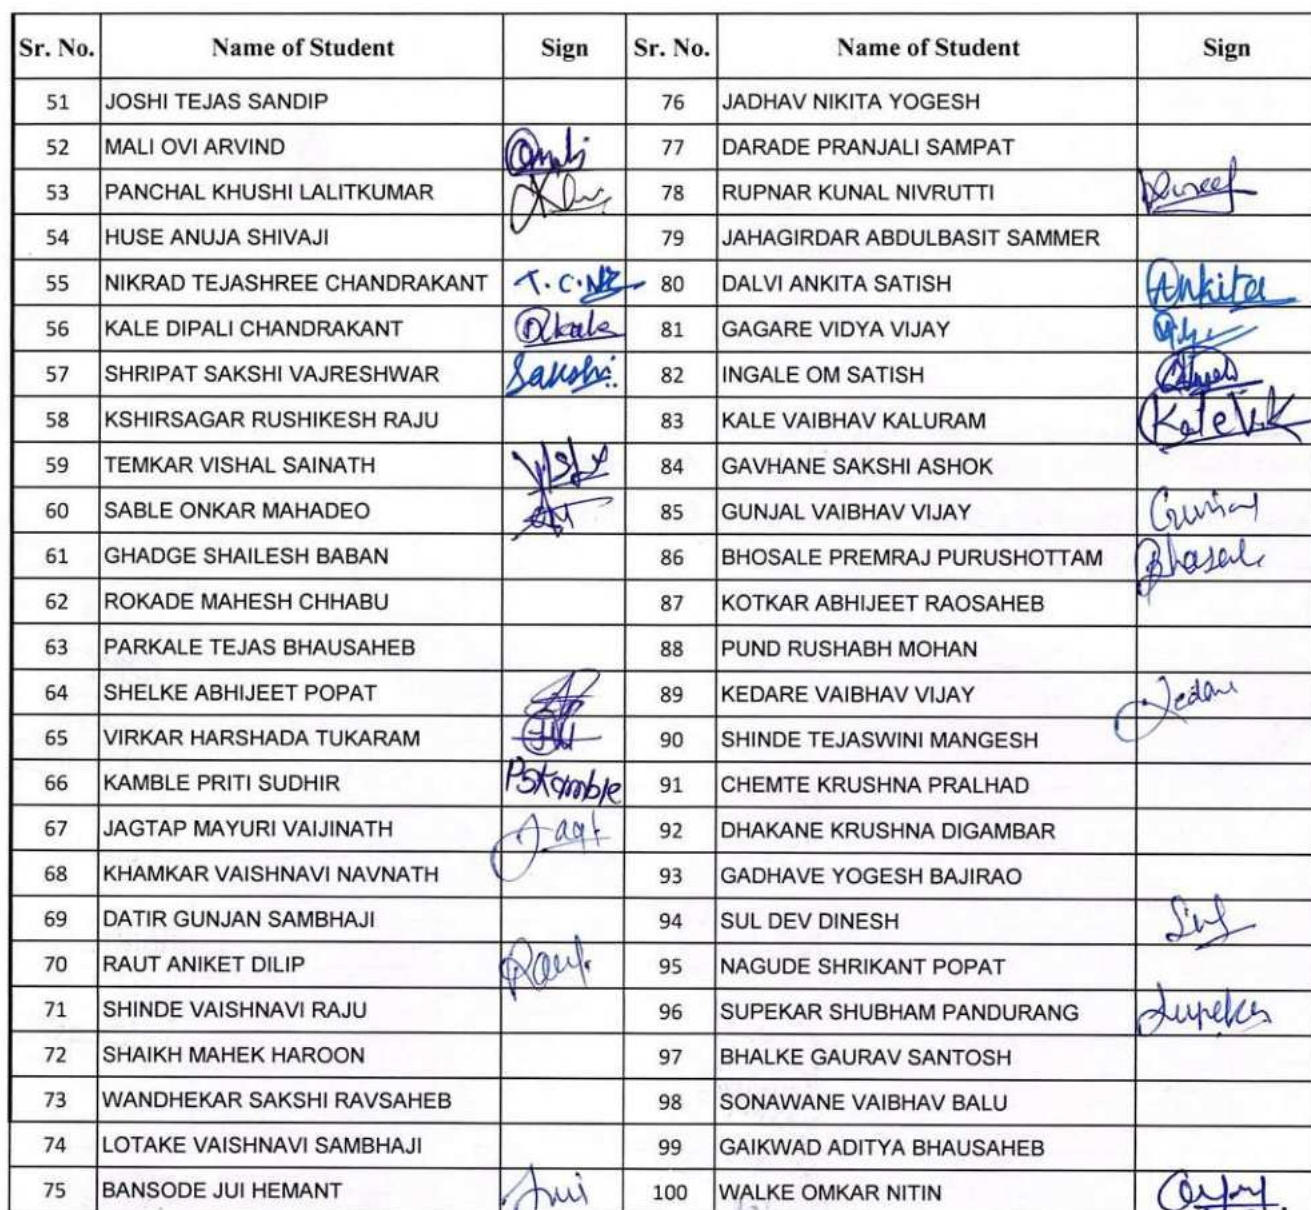 Sr. No. Name of Student Sign Sr. No. Name of Student Sign
51 JOSHI TEJAS SANDIP 76 JADHAV NIKITA YOGESH
52 MALI OVI ARVIND 77 DARADE PRANJALI SAMPAT
53 PANCHAL KHUSHI LALITKUMAR 78 RUPNAR KUNAL NIVRUTTI
54 HUSE ANUJA SHIVAJI 79 JAHAGIRDAR ABDULBASIT SAMMER
55 NIKRAD TEJASHREE CHANDRAKANT 80 DALVI ANKITA SATISH Ankita
56 KALE DIPALI CHANDRAKANT Dkale 81 GAGARE VIDYA VIJAY
57 SHRIPAT SAKSHI VAJRESHWAR Sakshi 82 INGALE OM SATISH
58 KSHIRSAGAR RUSHIKESH RAJU 83 KALE VAIBHAV KALURAM
59 TEMKAR VISHAL SAINATH 84 GAVHANE SAKSHI ASHOK
60 SABLE ONKAR MAHADEO 85 GUNJAL VAIBHAV VIJAY
61 GHADGE SHAILESH BABAN 86 BHOSALE PREMRAJ PURUSHOTTAM
62 ROKADE MAHESH CHHABU 87 KOTKAR ABHIJEET RAOSAHEB
63 PARKALE TEJAS BHAUSAHEB 88 PUND RUSHABH MOHAN
64 SHELKE ABHIJEET POPAT 89 KEDARE VAIBHAV VIJAY
65 VIRKAR HARSHADA TUKARAM 90 SHINDE TEJASWINI MANGESH
66 KAMBLE PRITI SUDHIR PSKamble 91 CHEMTE KRUSHNA PRALHAD
67 JAGTAP MAYURI VAIJINATH 92 DHAKANE KRUSHNA DIGAMBAR
68 KHAMKAR VAISHNAVI NAVNATH 93 GADHAVE YOGESH BAJIRAO
69 DATIR GUNJAN SAMBHAJI 94 SUL DEV DINESH
70 RAUT ANIKET DILIP 95 NAGUDE SHRIKANT POPAT
71 SHINDE VAISHNAVI RAJU 96 SUPEKAR SHUBHAM PANDURANG
72 SHAIKH MAHEK HAROON 97 BHALKE GAURAV SANTOSH
73 WANDHEKAR SAKSHI RAVSAHEB 98 SONAWANE VAIBHAV BALU
74 LOTAKE VAISHNAVI SAMBHAJI 99 GAIKWAD ADITYA BHAUSAHEB
75 BANSODE JUI HEMANT Jui 100 WALKE OMKAR NITIN